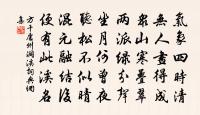 氣象四時清
無人畫得成
眾山寒疊翠
兩派綠分聲
坐月何曾夜
聽松不似晴
混元融結後
便有此溪名
方干處州洞溪詞典網
集